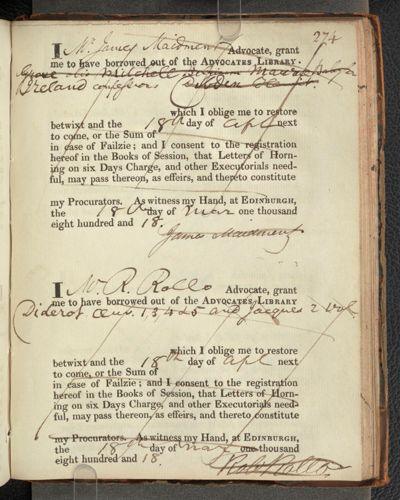 274
I Mr. James Maidment Advocate, grant
me to have borrowed out of the ADVOCATES LIBRARY.
Mitchell
Breland confessions
which I oblige me to restore
betwixt and the 18th day of Apl next
to come, or the Sum of
in case of Failzie; and I consent to the registration
hereof in the Books of Session, that Letters of Horn-
ing on six Days Charge, and other Executorials need-
ful, may pass thereon, as effeirs, and thereto constitute
my Procurators. As witness my Hand, at EDINBURGH,
the 18th day of Mar one thousand
eight hundred and 18.
James Maidment
I Mr. R. Rollo Advocate, grant
me to have borrowed out of the ADVOCATES LIBRARY
Diderot Œuv. 1 3 4 & 5 and Jacques 2 vol.
which I oblige me to restore
betwixt and the 18th day of Apl next
to come, or the Sum of
in case of Failzie; and I consent to the registration
hereof in the Books of Session, that Letters of Horn-
ing on six Days Charge, and other Executorials need-
ful, may pass thereon, as effeirs, and thereto constitute
my Procurators. As witness my Hand, at EDINBURGH,
the 18th day of Mar one thousand
eight hundred and 18.
Robt Rollo